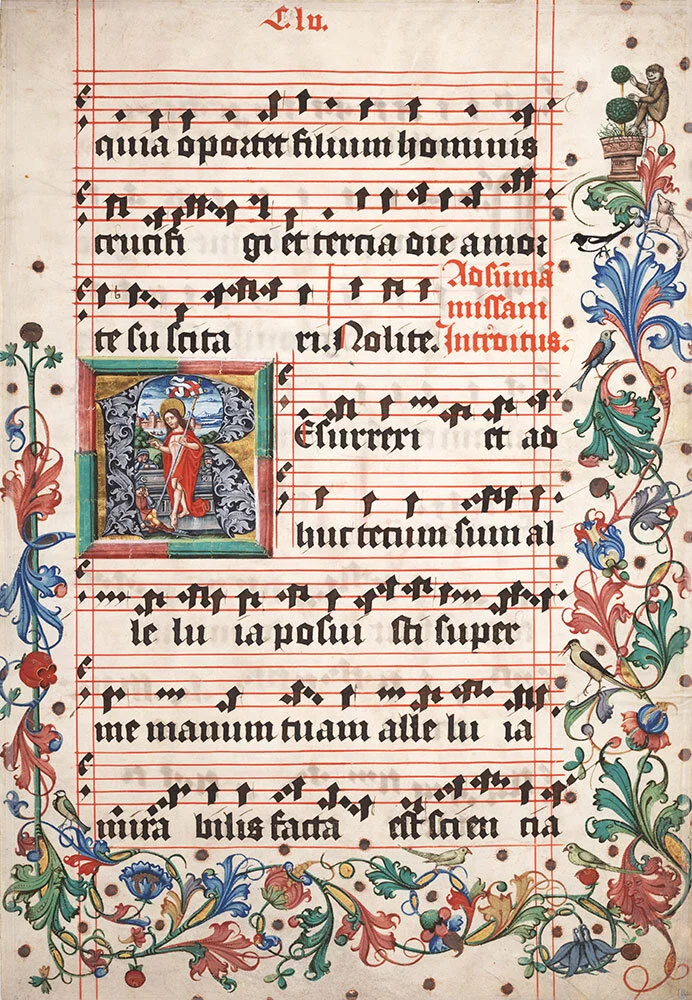 C. lv.
quia oportet filium hominis
crucifi gi et tercia die a mor
te su scita ri. Nolite. Ad sūmā
missam
Introitus.
Esurrexi et ad
huc tecum sum al
le lu ia posui sti super
me manum tuam alle lu ia
mira bilis facta est scien cia